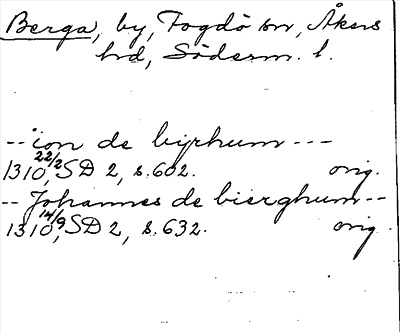 Berga, by, Fogdö sn, Åkers
hd, Söderm. l.
-- ion de byrhum ---
1310 22/2, SD 2, s. 602. orig.
-- Johannes de bierghum --
1310 14/9, SD 2, s. 632. orig.